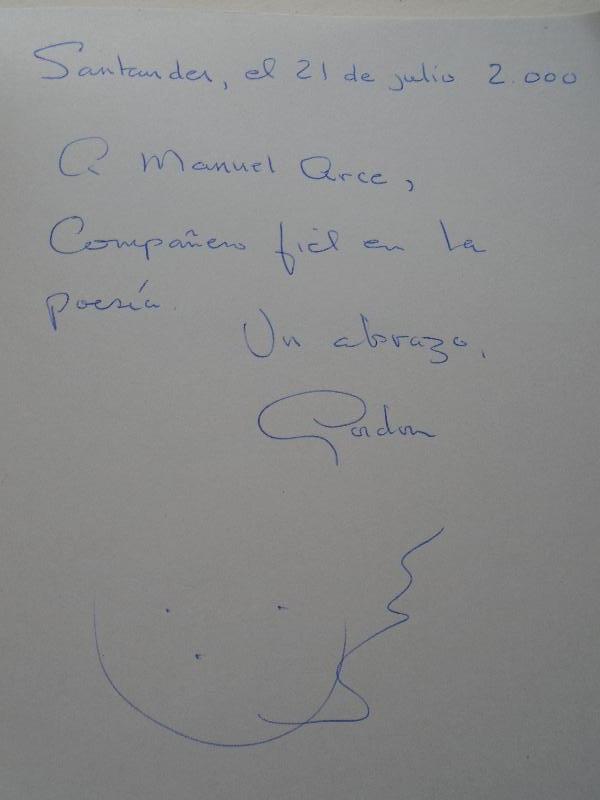 Santander, el 21 de julio 2.000
A Manuel Arce,
Compañero fiel en la
poesía.
Un abrazo,
Gordon